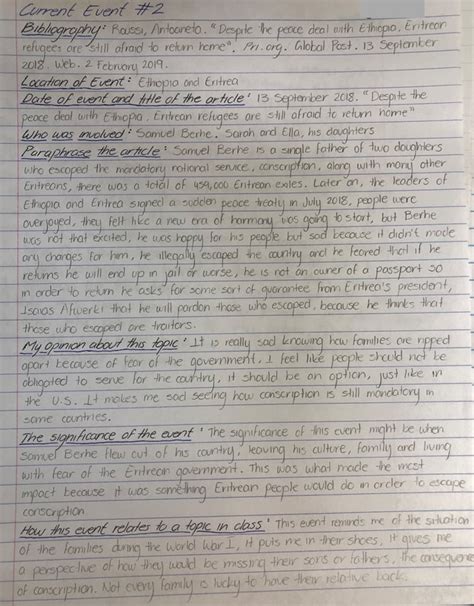 Current Event #2
Bibliography: Rossi, Antoaneta. "Despite the peace deal with Ethiopia, Eritrean
refugees are still afraid to return home". Pri.org. Global Post. 13 September
2018. Web. 2 February 2019.
Location of Event: Ethiopia and Eritrea
Date of event and title of the article: 13 September 2018. "Despite the
peace deal with Ethiopia, Eritrean refugees are still afraid to return home"
Who was involved: Samuel Berhe, Sarah and Ella, his daughters
Paraphrase the article: Samuel Berhe is a single father of two daughters
who escaped the mandatory national service, conscription, along with many other
Eritreans, there was a total of 459,000 Eritrean exiles. Later on, the leaders of
Ethiopia and Eritrea signed a sudden peace treaty in July 2018, people were
overjoyed, they felt like a new era of harmony was going to start, but Berhe
was not that excited, he was happy for his people but sad because it didn't made
any changes for him, he illegally escaped the country and he feared that if he
returns he will end up in jail or worse, he is not an owner of a passport so
in order to return he asks for some sort of guarantee from Eritrea's president,
Isaias Afwerki that he will pardon those who escaped, because he thinks that
those who escaped are traitors.
My opinion about this topic: It is really sad knowing how families are ripped
apart because of fear of the government, I feel like people should not be
obligated to serve for the country, it should be an option, just like in
the U.S. It makes me sad seeing how conscription is still mandatory in
some countries.
The significance of the event: The significance of this event might be when
Samuel Berhe flew out of his country, leaving his culture, family and living
with fear of the Eritrean government. This was what made the most
impact because it was something Eritrean people would do in order to escape
conscription
How this event relates to a topic in class: This event reminds me of the situation
of the families during the World War I, it puts me in their shoes, it gives me
a perspective of how they would be missing their sons or fathers, the consequence
of conscription. Not every family is lucky to have their relative back.